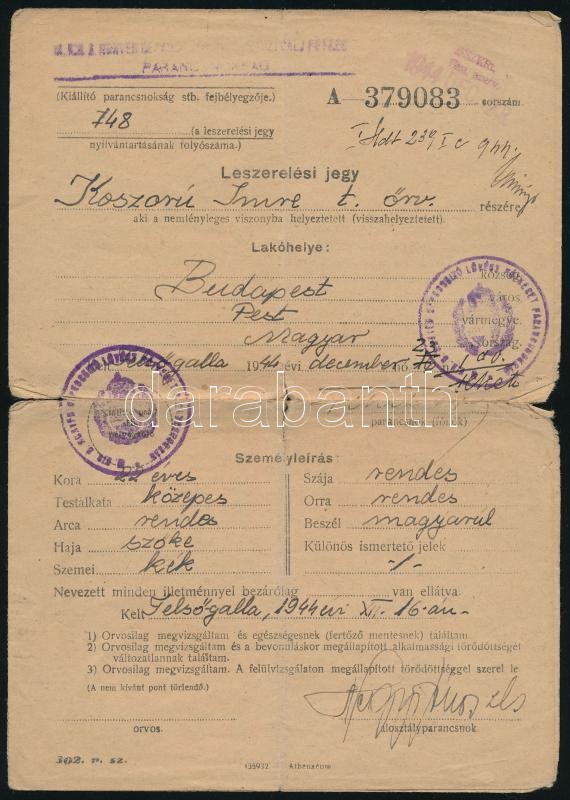 PARANCSNOKSÁG
(Kiállító parancsnokság stb. fejbélyegzője.)
A 379083 sorszám.
748 (a leszerelési jegy
nyilvántartásának folyószáma.)
Leszerelési jegy
Koszorú Imre t. őrv. részére,
aki a nemtényleges viszonyba helyeztetett (visszahelyeztetett).
Lakóhelye:
község
Budapest város
Pest vármegye
Magyar ország.
galla 1944 évi december hó
parancsnok (főnök)
Személyleírás:
Kora 22 éves
Szája rendes
Testalkata közepes
Orra rendes
Arca rendes
Beszél magyarul
Haja szőke
Különös ismertető jelek
Szemei kék
-/-
Nevezett minden illetménnyel bezárólag van ellátva.
Kelt Felsőgalla, 1944 évi XII. 16-án.
1) Orvosilag megvizsgáltam és egészségesnek (fertőző mentesnek) találtam.
2) Orvosilag megvizsgáltam és a bevonuláskor megállapított alkalmassági törődöttségét
változatlannak találtam.
3) Orvosilag megvizsgáltam. A felülvizsgálaton megállapított törődöttséggel szerel le
(A nem kívánt pont törlendő.)
orvos.
alosztályparancsnok
302. r. sz.
135932 Athenaeum
darabanth